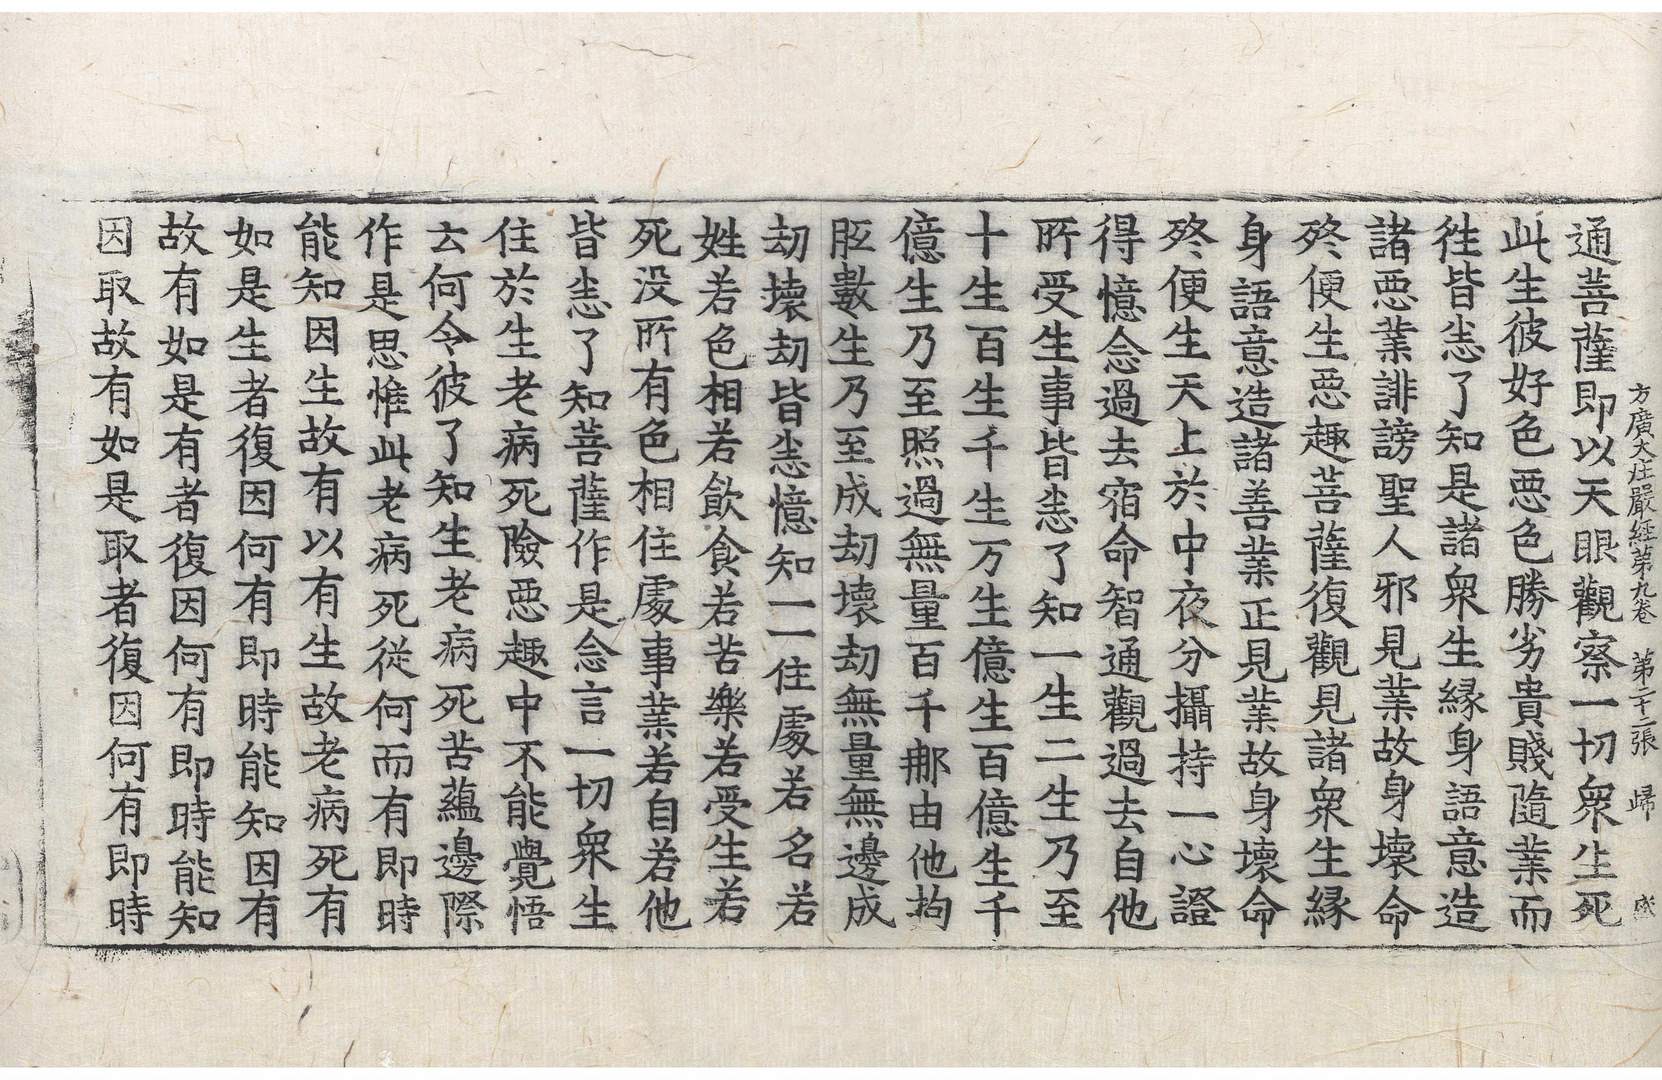 方廣大莊嚴經第九卷 第二十二張 歸 成
通菩薩即以天眼觀察一切衆生死
此生彼好色惡色勝劣貴賤隨業而
往皆悉了知是諸衆生緣身語意造
諸惡業誹謗聖人邪見業故身壞命
終便生惡趣菩薩復觀見諸衆生緣
身語意造諸善業正見業故身壞命
終便生天上於中夜分攝持一心證
得憶念過去宿命智通觀過去自他
所受生事皆悉了知一生二生乃至
十生百生千生万生億生百億生千
億生乃至照過無量百千那由他拘
胝數生乃至成劫壞劫無量無邊成
劫壞劫皆悉憶知一一住處若名若
姓若色相若飮食若苦樂若受生若
死没所有色相住處事業若自若他
皆悉了知菩薩作是念言一切衆生
住於生老病死險惡趣中不能覺悟
云何令彼了知生老病死苦蘊邊際
作是思惟此老病死從何而有即時
能知因生故有以有生故老病死有
如是生者復因何有即時能知因有
故有如是有者復因何有即時能知
因取故有如是取者復因何有即時